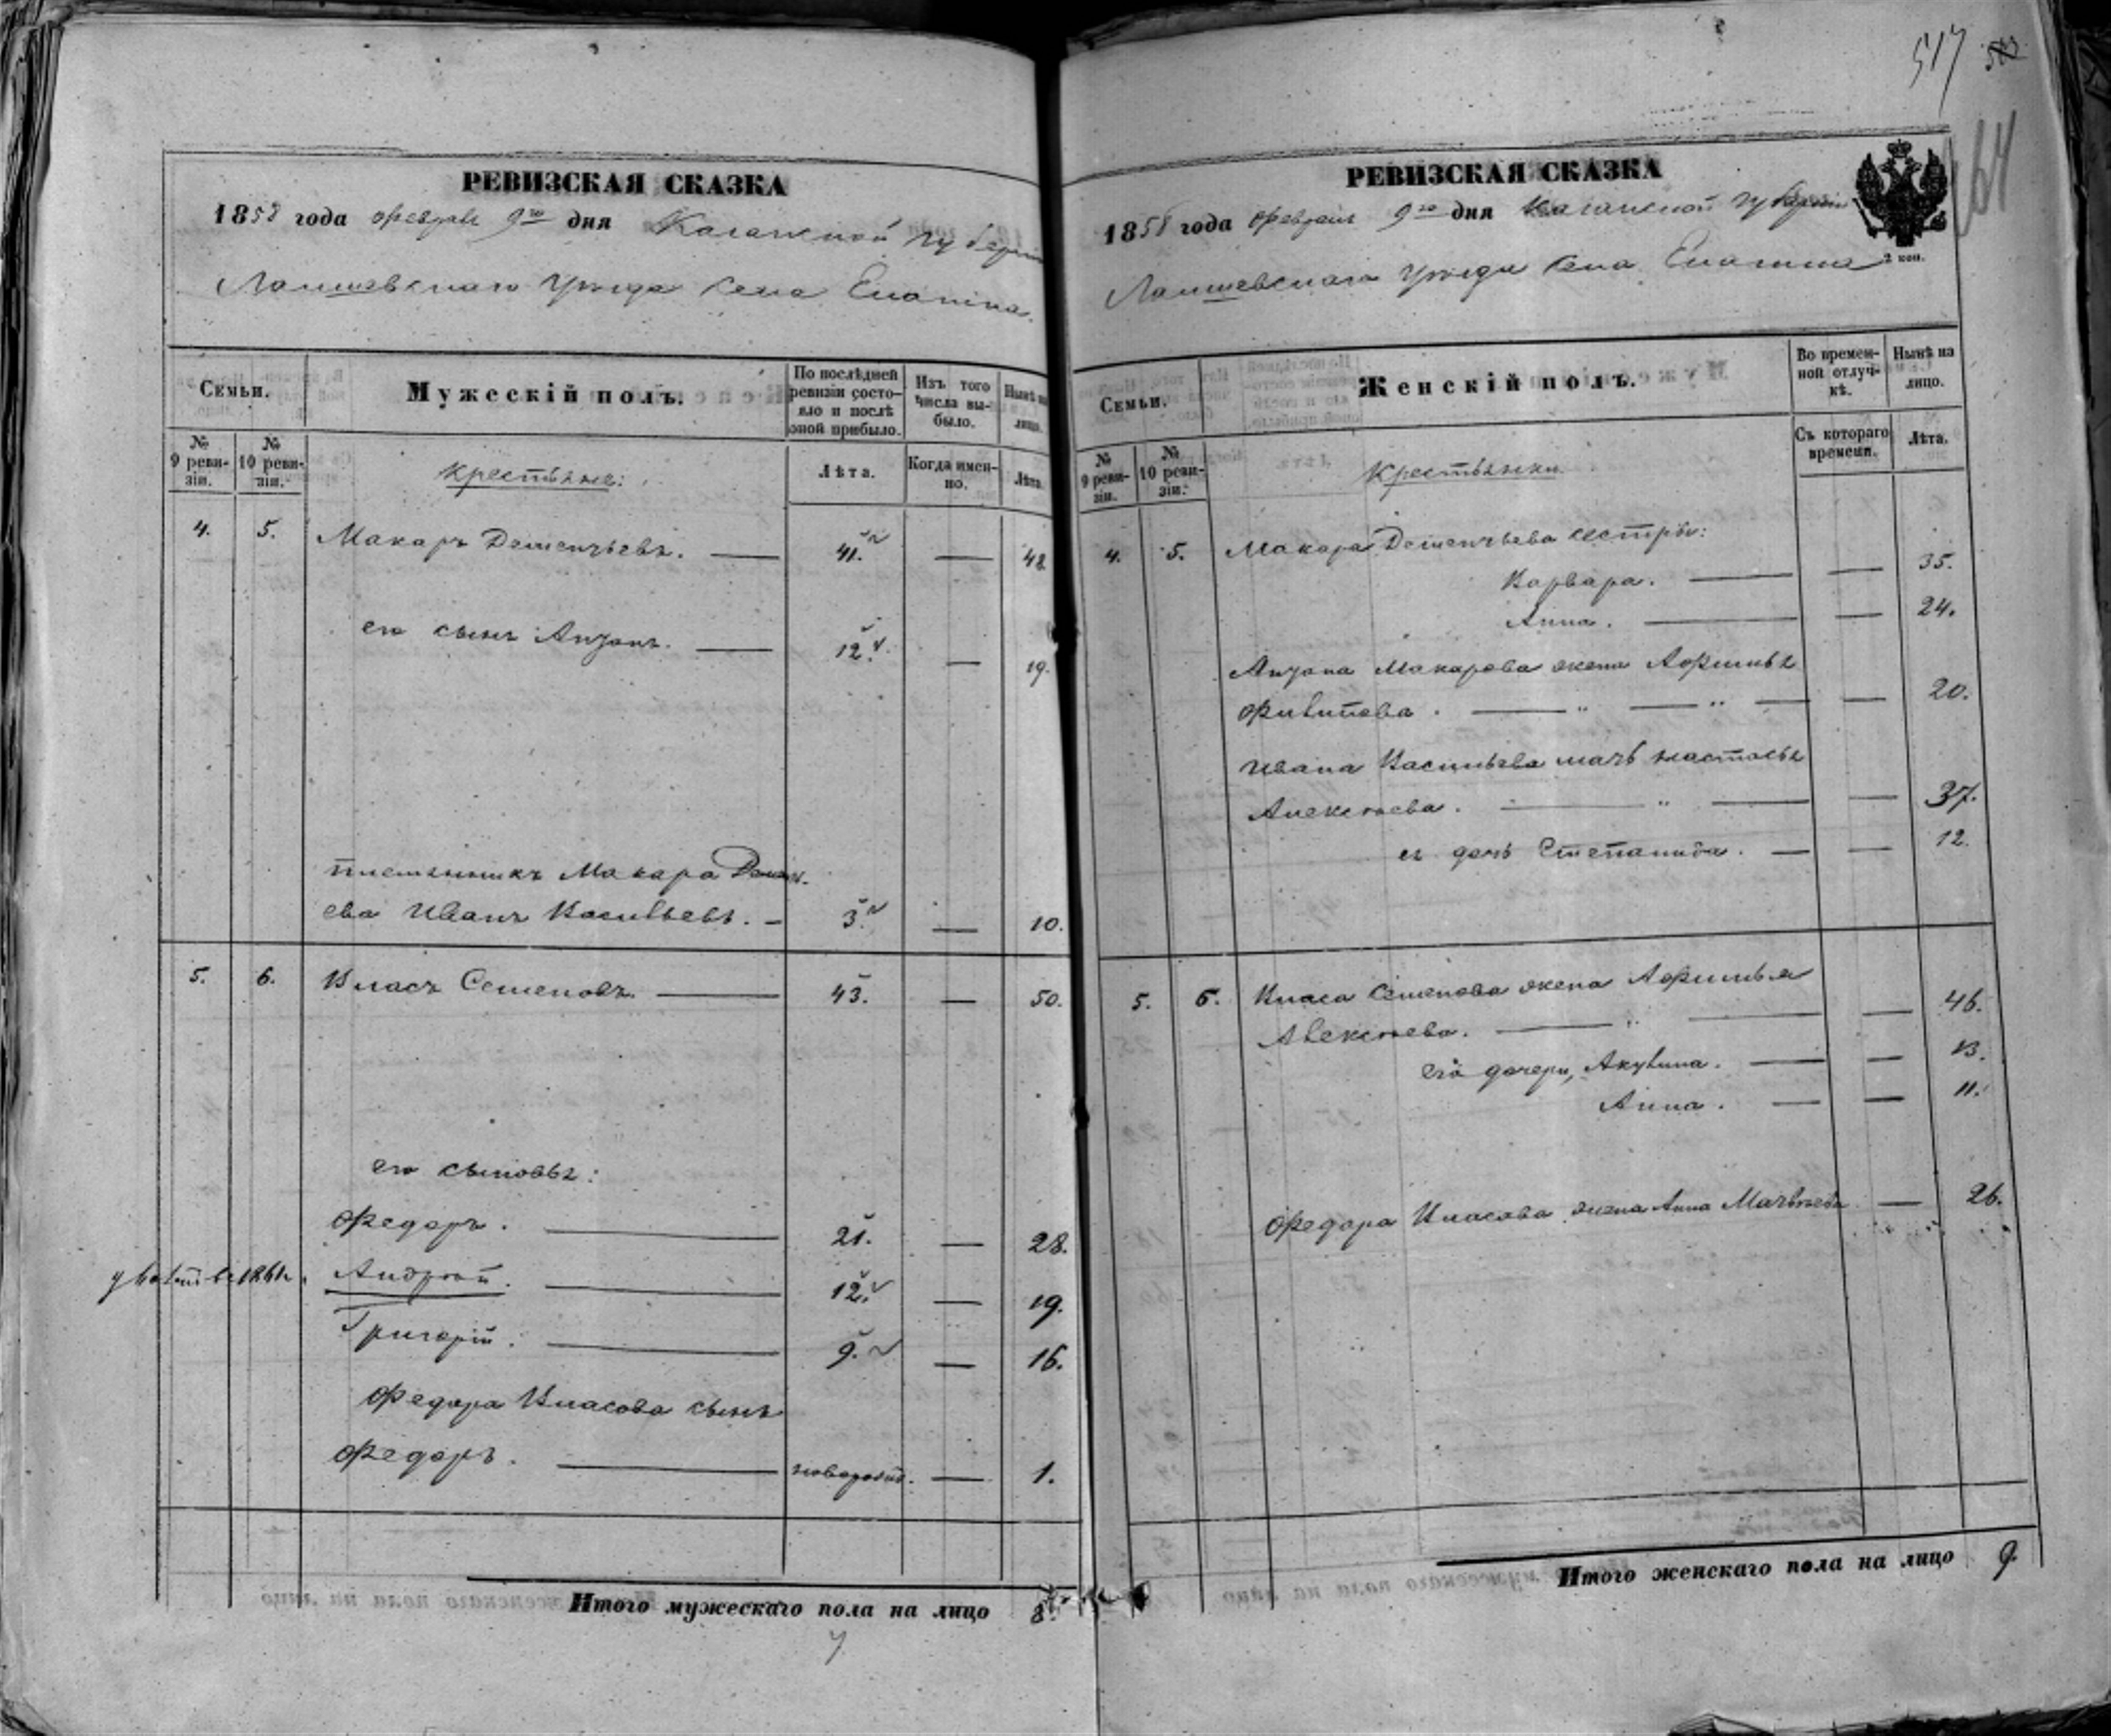 517
64
РЕВИЗСКАЯ СКАЗКА
1858 года февраля 9го дня Казанской губерніи
Лаишевскаго уѣзда села Епанина.
Семьи.
Мужескій полъ.
По послѣдней ревизіи состояло и послѣ оной прибыло.
Изъ того числа выбыло.
Нынѣ на лицо.
№ 9 ревизіи.
№ 10 ревизіи.
Крестьяне:
Лѣта.
Когда именно.
Лѣта.
4. 5. Макаръ Дементьевъ. — 41. — 48
его сынъ — 12. — 19.
племянникъ Макара Демент-
ева Иванъ Васильевъ. — 3. — 10.
5. 6. Власъ Семеновъ. — 43. — 50.
его сыновья:
Федоръ. — 21. — 28.
1861 Андрей. — 12. — 19.
Григорій. — 9. — 16.
Федора Власова сынъ
Федоръ. — новорожд. — 1.
Итого мужескаго пола на лицо 8.
7
РЕВИЗСКАЯ СКАЗКА
1858 года февраля 9го дня Казанской губерніи
2 коп.
Лаишевскаго уѣзда села
Семьи.
Женскій полъ.
Во временной отлучкѣ.
Нынѣ на лицо.
№ 9 ревизіи.
№ 10 ревизіи.
Крестьянки
Съ котораго времени.
Лѣта.
4. 5. Макара Дементьева сестры:
Варвара. — — 35.
Анна. — — 24.
Макарова жена Афимья
Филипова. — " — " — — 20.
Ивана Васильева мать Настасья
Алексѣева. — " — — 37.
ея дочь Степанида. — — 12.
5. 6. Власа Семенова жена Афимья
Алексѣева. — " — — 46.
его дочери, Акулина. — — 13.
Анна. — — 11.
Федора Власова жена Анна Матвѣева — 26.
Итого женскаго пола на лицо 9.